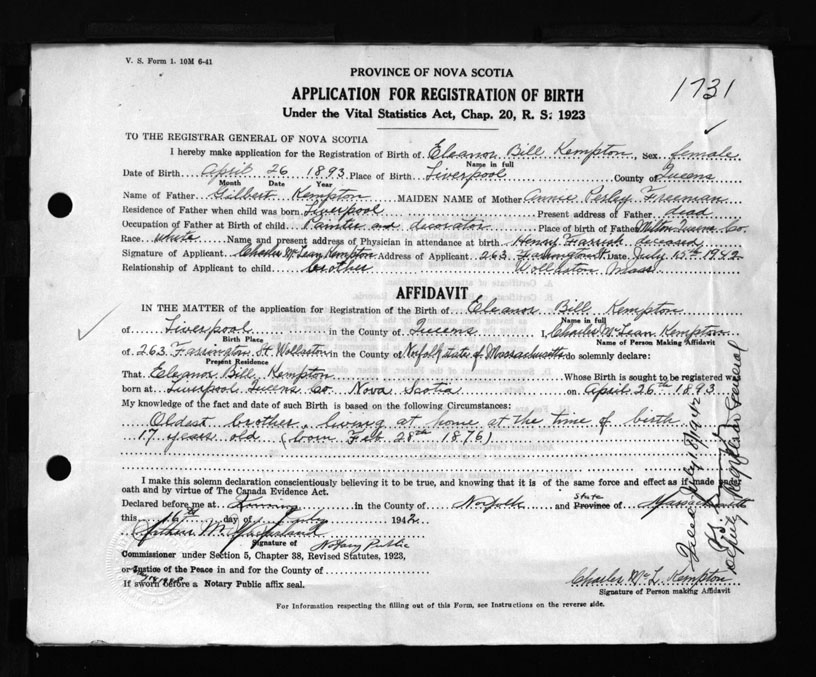 V. S. Form 1. 10M 6-41
PROVINCE OF NOVA SCOTIA
1731
APPLICATION FOR REGISTRATION OF BIRTH
Under the Vital Statistics Act, Chap. 20, R. S. 1923
TO THE REGISTRAR GENERAL OF NOVA SCOTIA
I hereby make application for the Registration of Birth of Eleanor Bill Kempton, Sex female
Name in full
Date of Birth April 26 1893 Place of Birth Liverpool County of Queens
Month Date Year
Name of Father Gilbert Kempton MAIDEN NAME of Mother Annie Perley Freeman
Residence of Father when child was born Liverpool Present address of Father dead
Occupation of Father at Birth of child Painter and decorator Place of Birth of Father Milton Queens Co.
Race white Name and present address of Physician in attendance at birth Henry Farrish deceased
Signature of Applicant Charles McLean Kempton Address of Applicant 263 Farrington St. Date July 15th 1942
Relationship of Applicant to child brother Wollaston Mass
AFFIDAVIT
IN THE MATTER of the application for Registration of the Birth of Eleanor Bill Kempton
Name in full
of Liverpool in the County of Queens I, Charles McLean Kempton
Birth Place Name of Person Making Affidavit
of 263 Farrington St. Wollaston in the County of Norfolk state of Massachusetts do solemnly declare:
Present Residence
That Eleanor Bill Kempton Whose Birth is sought to be registered was
born at Liverpool Queens Co. Nova Scotia on April 26th 1893
My knowledge of the fact and date of such Birth is based on the following Circumstances:
Oldest brother, living at home at the time of birth
17 years old (born Feb 28th 1876)
I make this solemn declaration conscientiously believing it to be true, and knowing that it is of the same force and effect as if made under
oath and by virtue of The Canada Evidence Act.
Declared before me at in the County of Norfolk and State Province of Massachusetts
this 16th day of July 1942
Arthur M.
Signature of Notary Public
Commissioner under Section 5, Chapter 38, Revised Statutes, 1923,
or Justice of the Peace in and for the County of
If sworn before a Notary Public affix seal.
Charles McL. Kempton
Signature of Person making Affidavit
For Information respecting the filling out of this Form, see Instructions on the reverse side.
July 18/1942
Deputy Registrar General